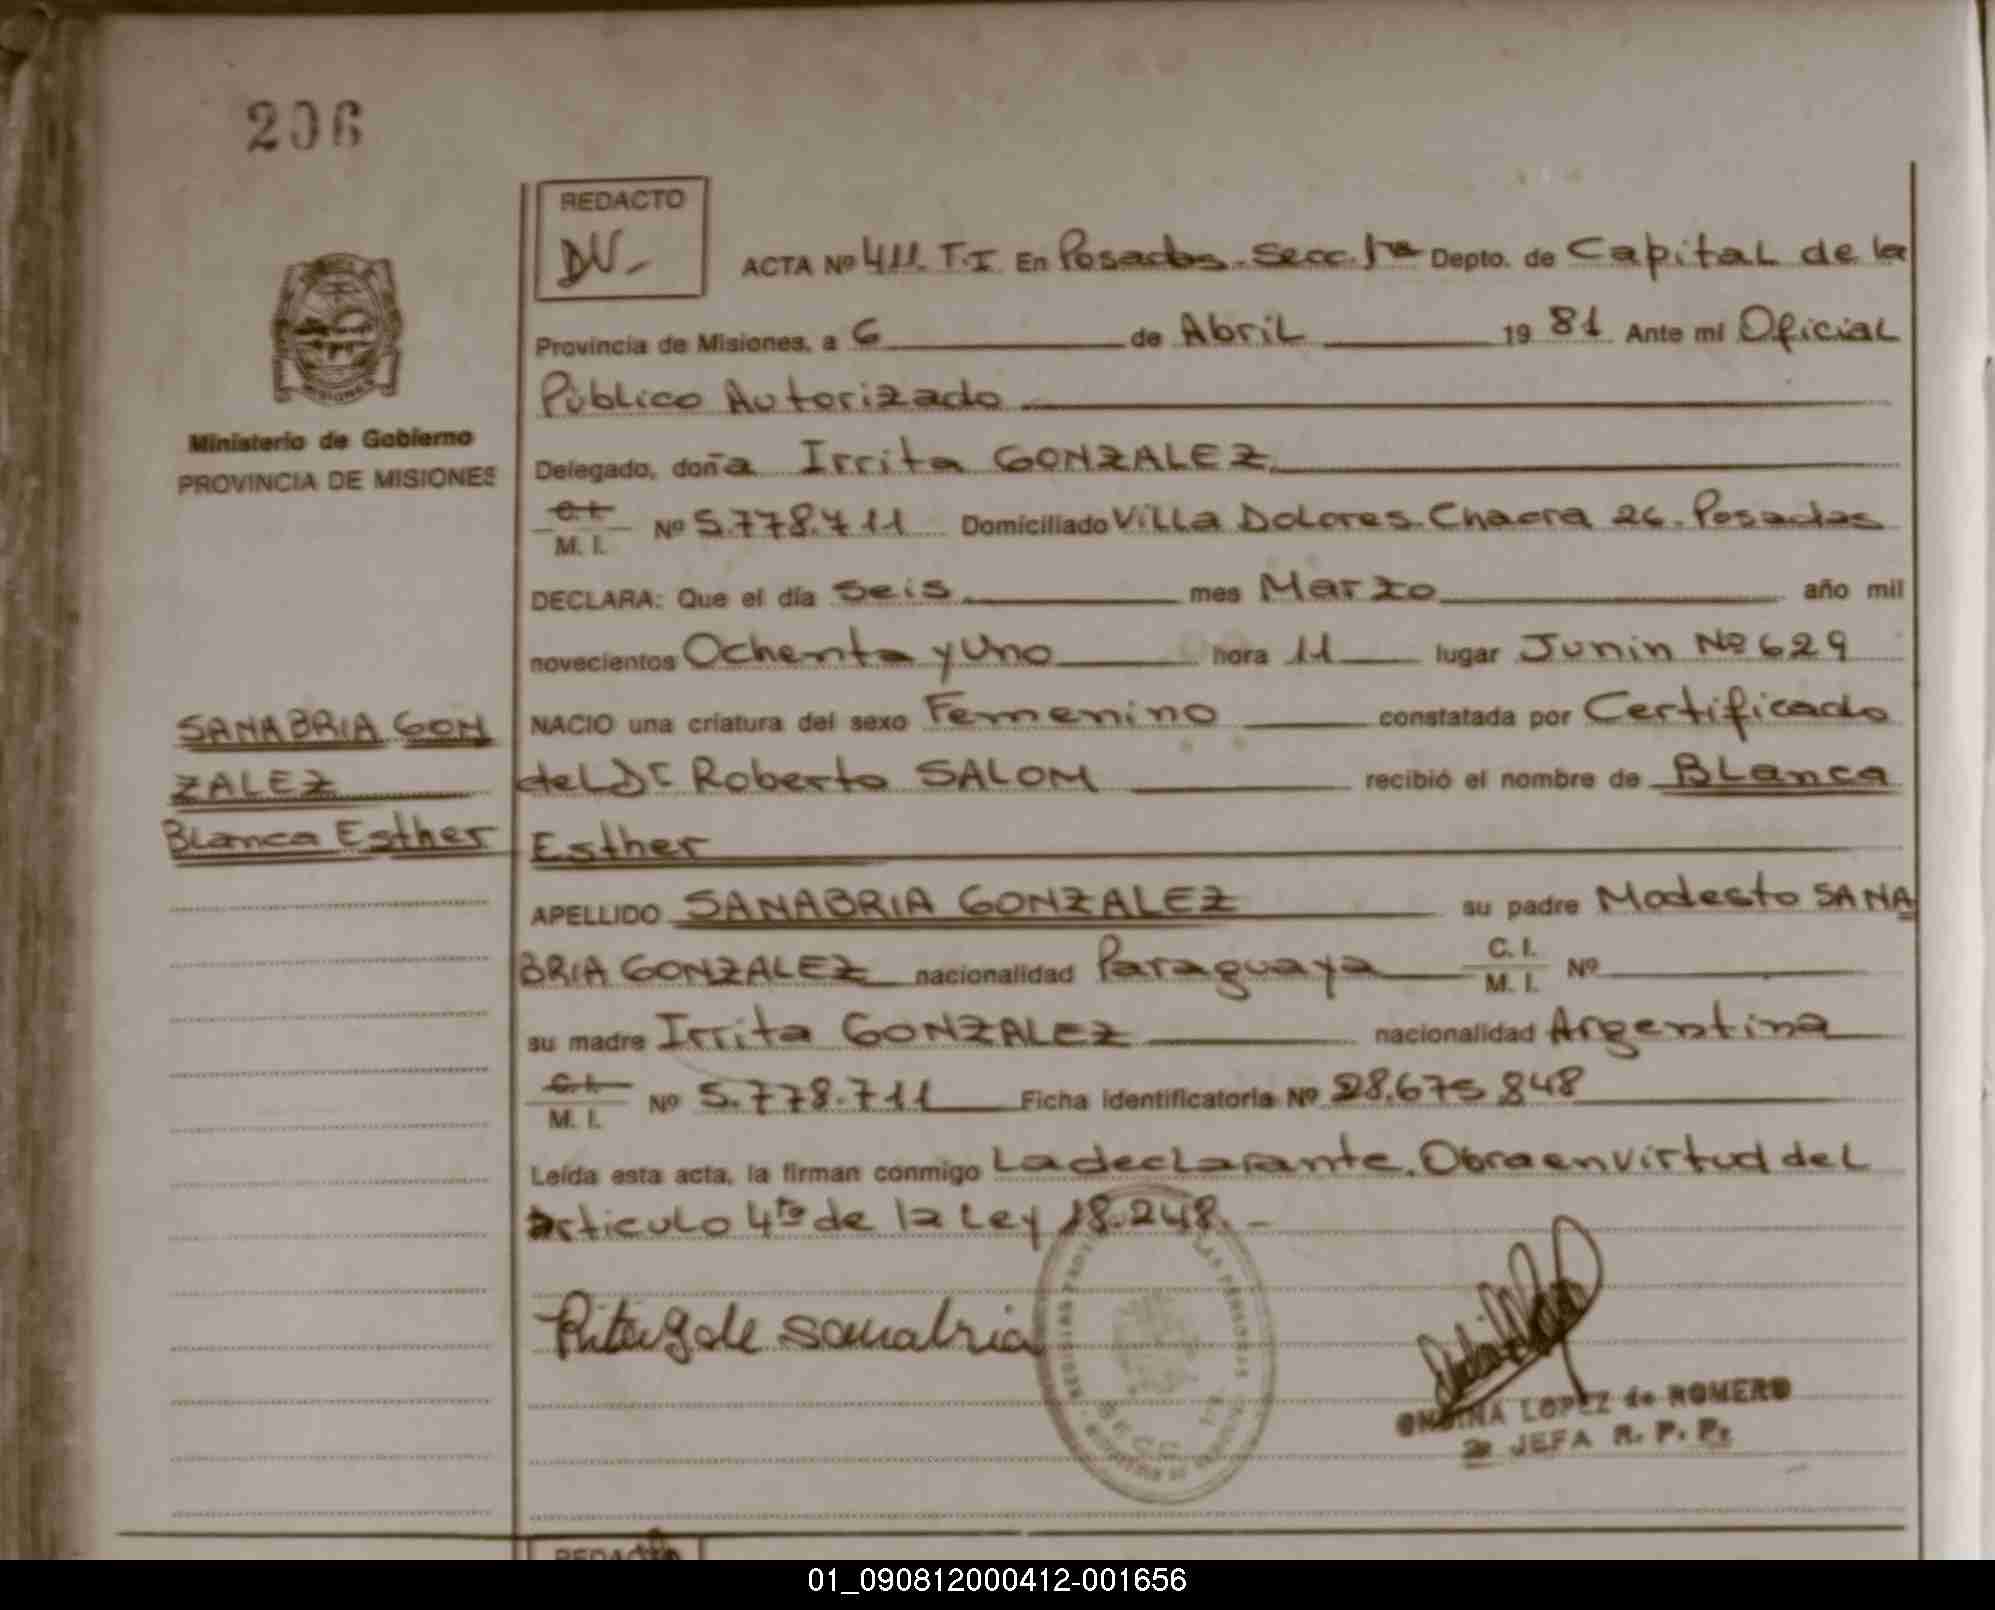 206
REDACTO
DV-
ACTA Nº 411. T.I En Posadas. Secc. 1ra Depto. de Capital de la
Provincia de Misiones, a 6 de Abril 19 81 Ante mí Oficial
Público Autorizado
Ministerio de Gobierno
PROVINCIA DE MISIONES
Delegado, doña Irrita GONZALEZ
C.I. M. I. Nº 5.778.711 Domiciliado Villa Dolores. Chacra 26. Posadas
DECLARA: Que el día Seis mes Marzo año mil
novecientos Ochenta y Uno hora 11 lugar Junin Nº 629
SANABRIA GON
ZALEZ
Blanca Esther
NACIO una criatura del sexo Femenino constatada por Certificado
del Dr Roberto SALOM recibió el nombre de Blanca
Esther
APELLIDO SANABRIA GONZALEZ su padre Modesto SANA
BRIA GONZALEZ nacionalidad Paraguaya C. I. M. I. Nº
su madre Irrita GONZALEZ nacionalidad Argentina
C.I. M. I. Nº 5.778.711 Ficha identificatoria Nº 28.675.848
Leída esta acta, la firman conmigo La declarante. Obra en virtud del
articulo 4to de la Ley 18.248.-
Rita g de sanabria
ONDINA LOPEZ de ROMERO
2a JEFA R. P. P.
SECC. 1ra
REDACTO
01_090812000412-001656